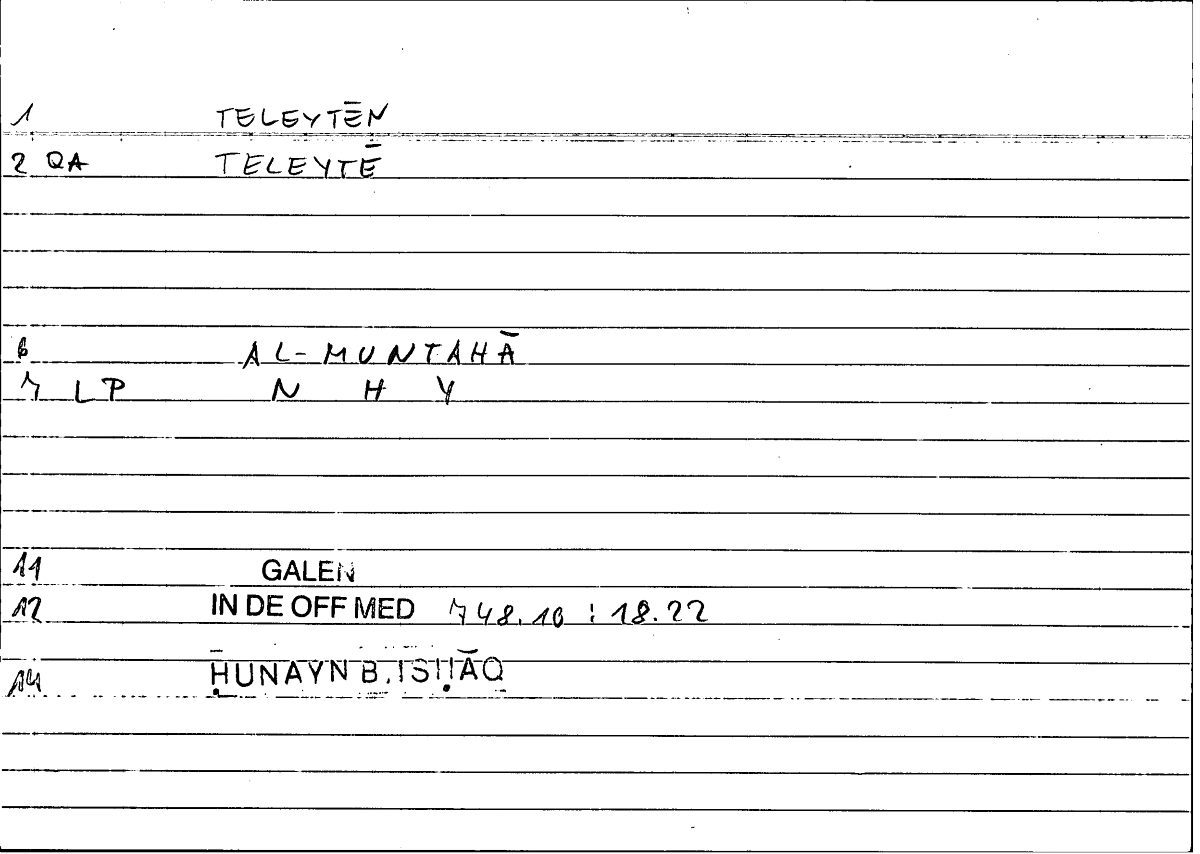 1 TELEYTĒN
2 QA TELEYTĒ
6 AL-MUNTAHĀ
7 LP N H Y
11 GALEN
12 IN DE OFF MED 748.10 : 18.22
14 ḤUNAYN B. ISḤĀQ